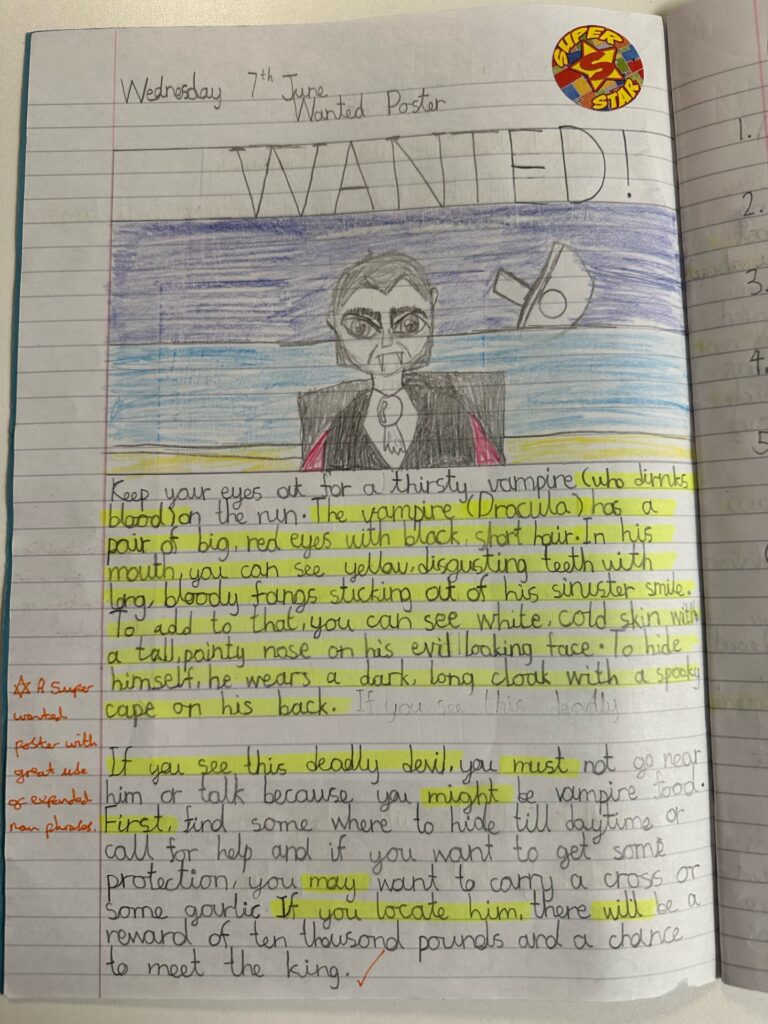 SUPER
S
STAR
Wednesday 7th June
Wanted Poster
WANTED!
Keep your eyes out for a thirsty vampire (who dirnks
blood) on the run. The vampire (Dracula) has a
pair of big, red eyes with black, short hair. In his
mouth, you can see yellow, disgusting teeth with
long, bloody fangs sticking out of his sinuster smile.
To add to that, you can see white, cold skin with
a tall, pointy nose on his evil looking face. To hide
himself, he wears a dark, long cloak with a spooky
cape on his back. If you see this deadly
☆ A super
wanted
poster with
great use
of expanded
noun phrases.
If you see this deadly devil, you must not go near
him or talk because you might be vampire food.
First, find some where to hide till daytime or
call for help and if you want to get some
protection, you may want to carry a cross or
some garlic. If you locate him, there will be a
reward of ten thousand pounds and a chance
to meet the king.
1.
2.
3.
4.
5